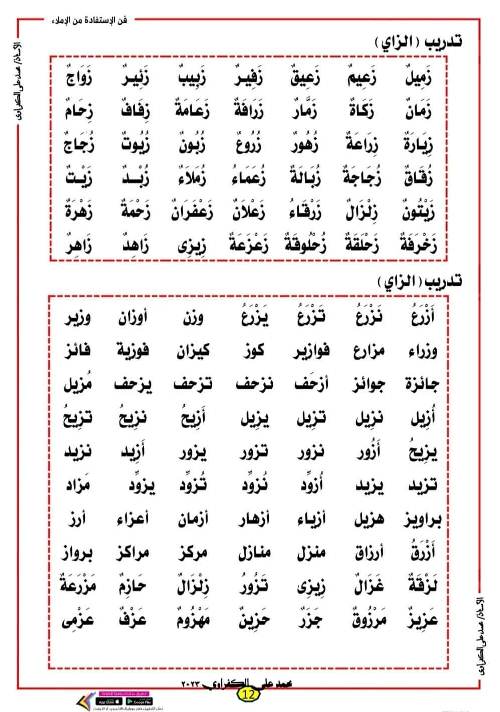 فن الإستفادة من الإملاء
تدريب (الزاي)
زَمِيلٌ زَعِيمٌ زَعِيقٌ زَفِيرٌ زَبِيبٌ زَئِيرٌ زَوَاجٌ
زَمَانٌ زَكَاةٌ زَمَّارٌ زَرَافَةٌ زَعَامَةٌ زِفَافٌ زِحَامٌ
زِيَارَةٌ زِرَاعَةٌ زُهُورٌ زُرُوعٌ زُبُونٌ زُيُوتٌ زُجَاجٌ
زُقَاقٌ زُجَاجَةٌ زُبَالَةٌ زُعَماءُ زُمَلَاءُ زُبْدٌ زَيْتٌ
زَيْتُونٌ زِلْزَالٌ زَرْقَاءُ زَعْلَانٌ زَعْفَرَانٌ زَحْمَةٌ زَهْرَةٌ
زَخْرَفَةٌ زَحْلَقَةٌ زُحْلُوقَةٌ زَعْزَعَةٌ زِيزِى زَاهِدٌ زَاهِرٌ
تدريب (الزاي)
أَزْرَعُ نَزْرَعُ تَزْرَعُ يَزْرَعُ وزن أوزان وزير
وزراء مزارع فوازير كوز كيزان فوزية فائز
جائزة جوائز أزحَف نزحف تزحف يزحف مُزيل
أُزيل نزيل تزيل يزيل أَزِيحُ نزيحُ تزيحُ
يزيحُ أَزُور نزور تزور يزور أَزيد نزيد
تزيد يزيد أُزوِّد نُزوِّد تُزوِّد يزوِّد مَزاد
براويز هزيل أزياء أزهار أزمان أعزاء أرز
أَزْرَقُ أرزاق منزل منازل مركز مراكز برواز
لَزْقَةٌ غَزَالٌ زِيزِى تَزُورُ زِلْزَالٌ حَازِمٌ مَزْرَعَةٌ
عَزِيزٌ مَرْزُوقٌ جَزَرٌ حَزِينٌ مَهْزُومٌ عَزْفٌ عَزْمِى
محمد على الكفراوي ٢٠٢٣
12